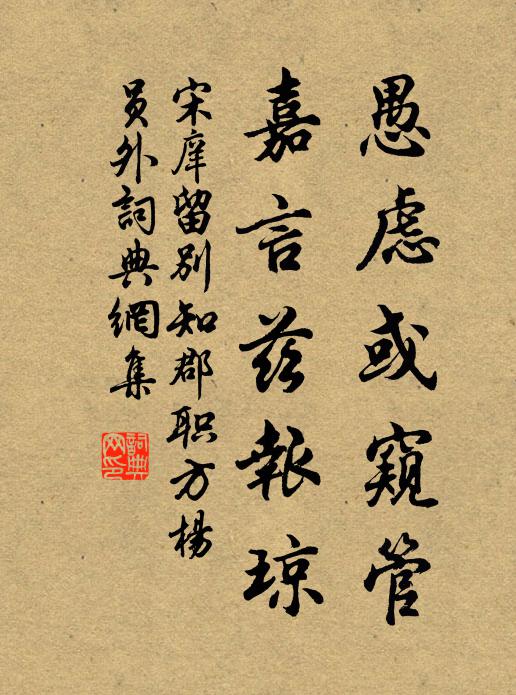 愚慮或窺管
嘉言茲報琼
宋庠留别知郡职方楊
員外詞典網集
詞典
网印